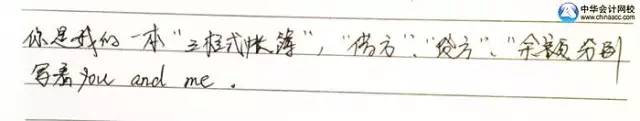 中华会计网校
www.chinaacc.com
你是我的一本“三栏式帐簿”，“借方”、“贷方”、“余额”分别
写着you and me．